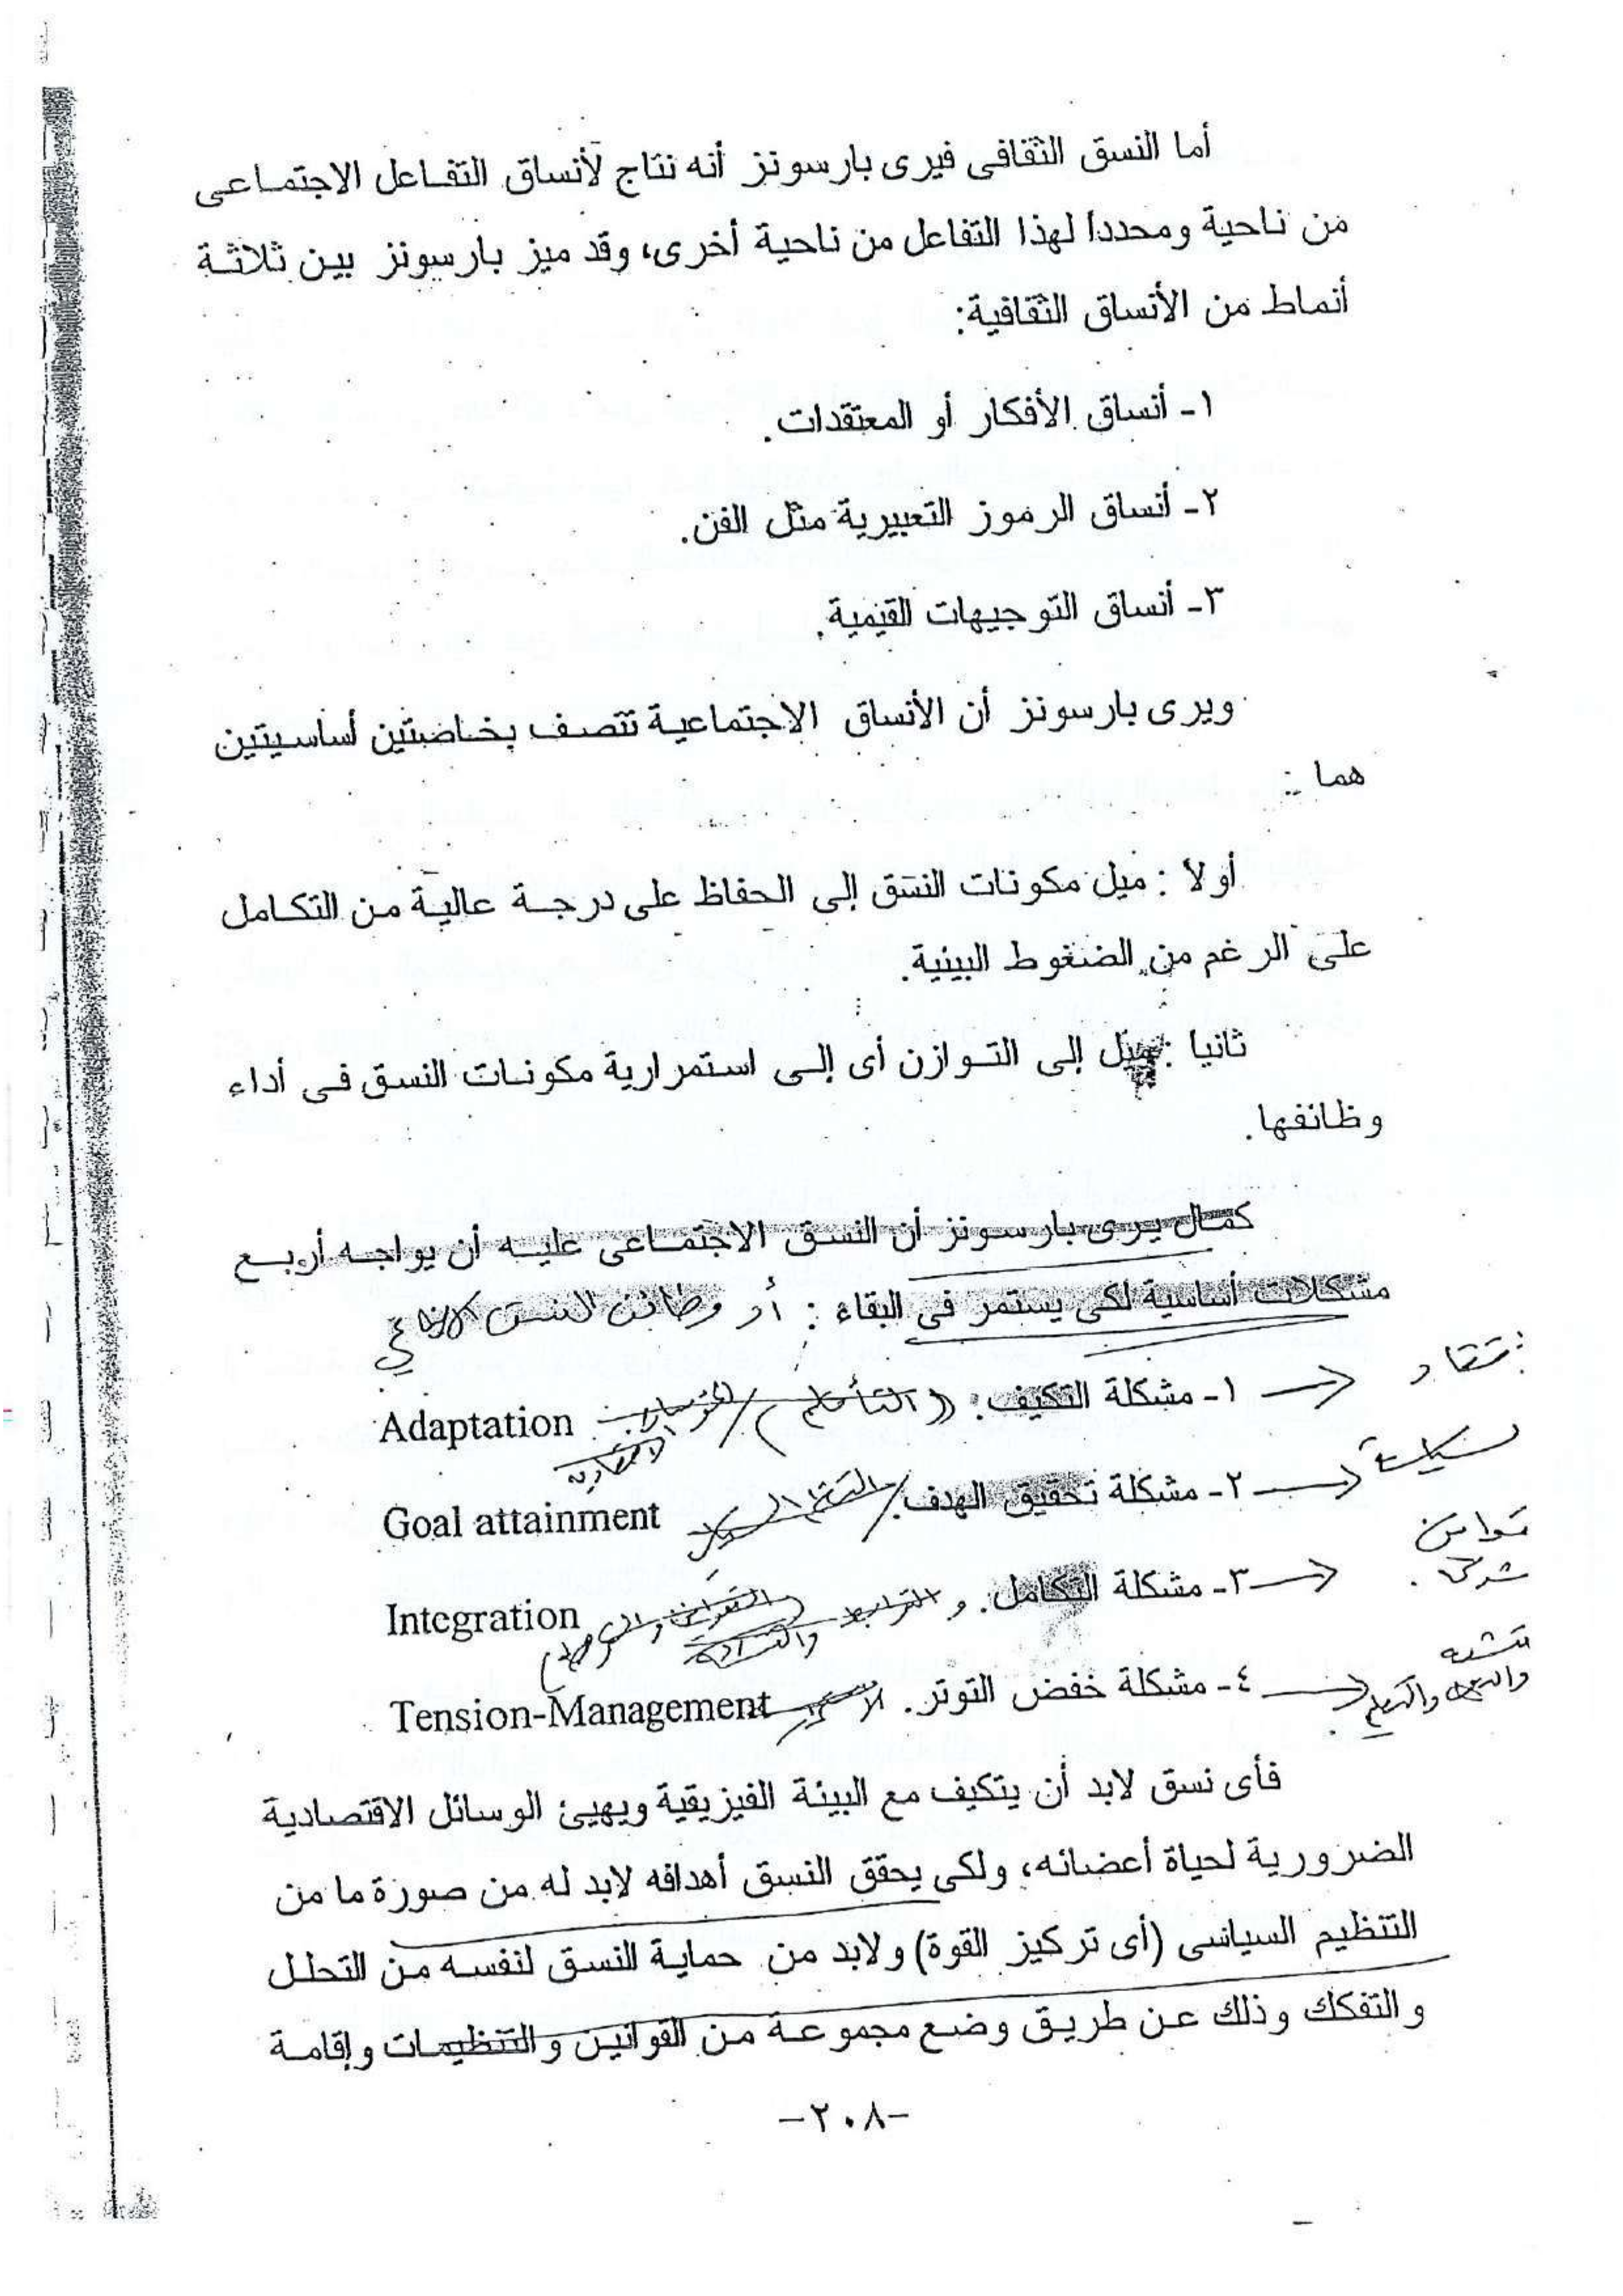 أما النسق الثقافى فيرى بارسونز أنه نتاج لأنساق التفاعل الاجتماعى
من ناحية ومحددا لهذا التفاعل من ناحية أخرى، وقد ميز بارسونز بين ثلاثة
أنماط من الأنساق الثقافية:
١- أنساق الأفكار أو المعتقدات.
٢- أنساق الرموز التعبيرية مثل الفن.
٣- أنساق التوجيهات القيمية.
ويرى بارسونز أن الأنساق الاجتماعية تتصف بخاصيتين أساسيتين
هما :
أولا : ميل مكونات النسق إلى الحفاظ على درجة عالية من التكامل
على الرغم من الضغوط البيئية.
ثانيا : ميل إلى التوازن أى إلى استمرارية مكونات النسق فى أداء
وظائفها.
كمال يرى بارسونز أن النسق الاجتماعى عليه أن يواجه أربع
مشكلات أساسية لكى يستمر فى البقاء : أو وظائف النسق الاجتماعي
١- مشكلة التكيف: (التأقلم) / Adaptation
سياسة ٢- مشكلة تحقيق الهدف. / Goal attainment
قوانين ٣- مشكلة التكامل. و الترابط Integration
٤- مشكلة خفض التوتر. Tension-Management
فأى نسق لابد أن يتكيف مع البيئة الفيزيقية ويهيئ الوسائل الاقتصادية
الضرورية لحياة أعضائه، ولكى يحقق النسق أهدافه لابد له من صورة ما من
التنظيم السياسى (أى تركيز القوة) ولابد من حماية النسق لنفسه من التحلل
والتفكك وذلك عن طريق وضع مجموعة من القوانين والتنظيمات وإقامة
-٢٠٨-